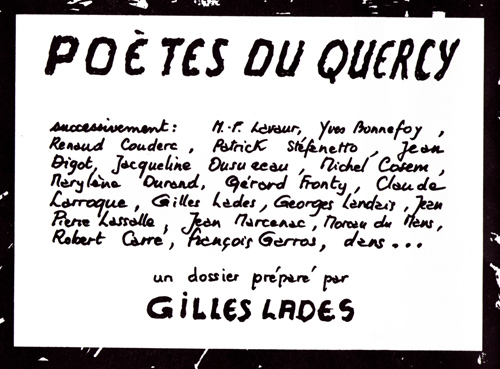 POÈTES DU QUERCY
successivement : M.-F. Lavaur, Yves Bonnefoy,
Renaud Couderc, Patrick Stéfanetto, Jean
Digot, Jacqueline Dusuzeau, Michel Cosem,
Marylène Durand, Gérard Fronty, Claude
Larroque, Gilles Lades, Georges Landais, Jean
Pierre Lassalle, Jean Marcenac, Moreau du Mans,
Robert Carré, François Garros, dans...
un dossier préparé par
GILLES LADES